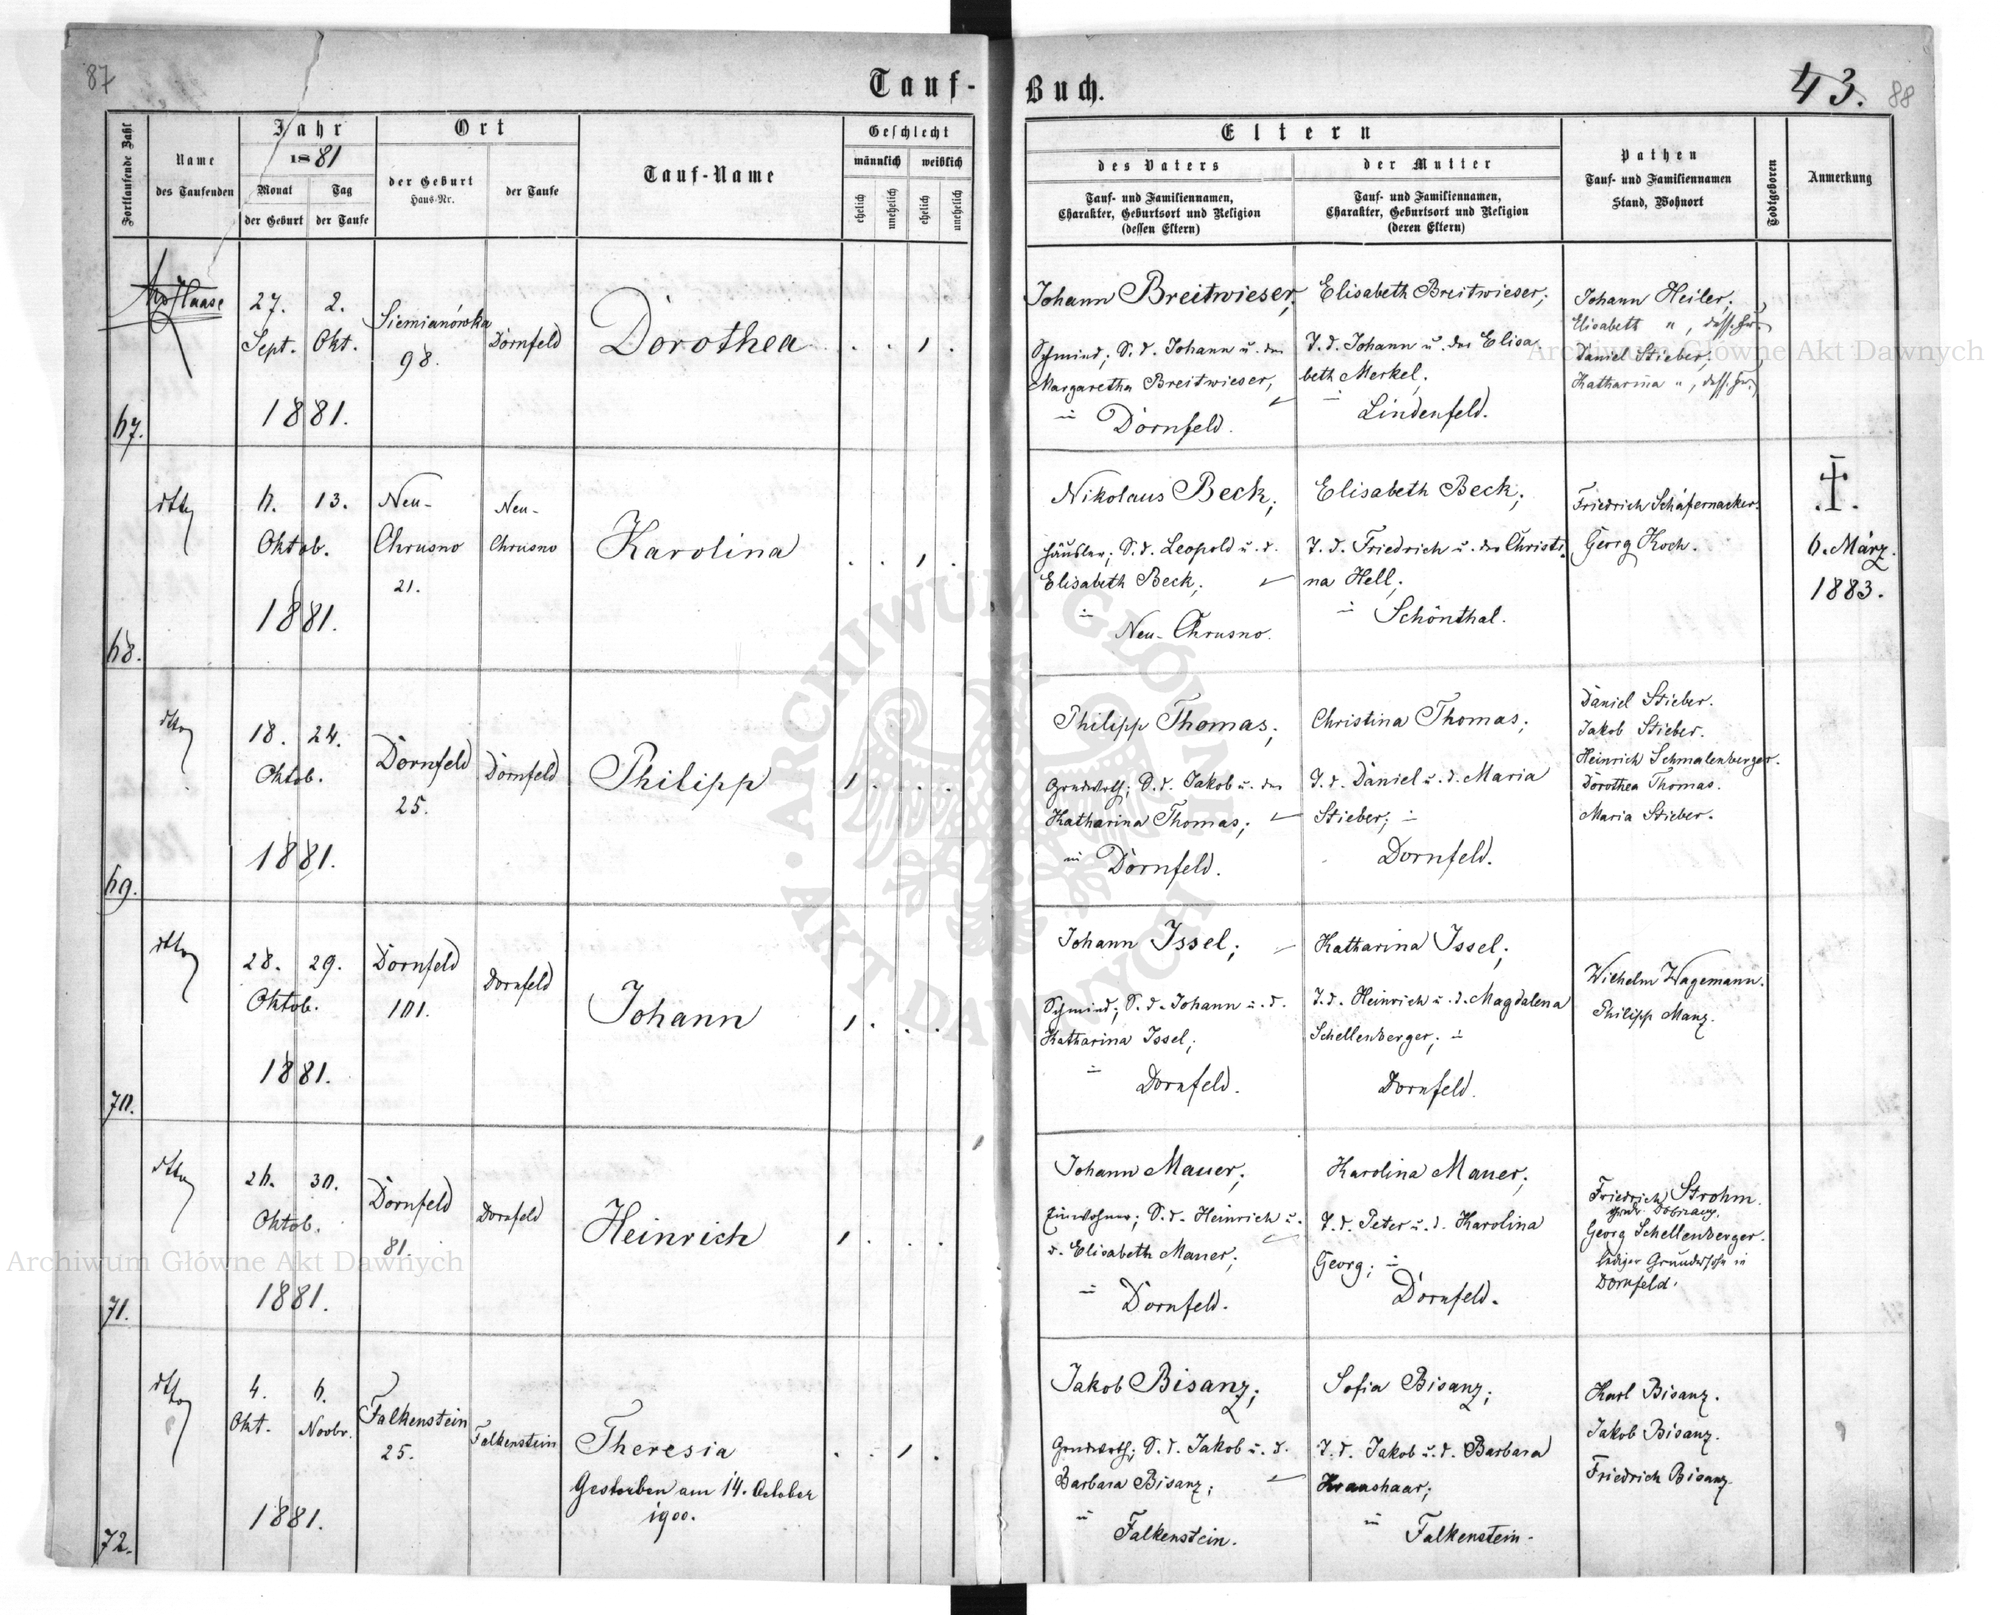 87
Tauf-
Buch.
43.
88
Fortlaufende Zahl
Name
des Taufenden
Jahr
1881
Monat
der Geburt
Tag
der Taufe
Ort
der Geburt
Haus-Nr.
der Taufe
Tauf-Name
Geschlecht
männlich
weiblich
ehelich
unehelich
ehelich
unehelich
Eltern
des Vaters
Tauf- und Familiennamen,
Charakter, Geburtsort und Religion
(dessen Eltern)
der Mutter
Tauf- und Familiennamen,
Charakter, Geburtsort und Religion
(deren Eltern)
Pathen
Tauf- und Familiennamen
Stand, Wohnort
Todtgeboren
Anmerkung
67.
Haase
27. 2.
Sept. Okt.
1881.
Siemianówka
98.
Dornfeld
Dorothea
Johann Breitwieser;
Schmied; S. d. Johann u. der
Margaretha Breitwieser,
in Dornfeld.
Elisabeth Breitwieser;
T. d. Johann u. der Elisa-
beth Merkel;
in Lindenfeld.
Johann Heiler;
Elisabeth " , dess. Fr.
Daniel Stieber;
Katharina " , dess. Fr.
68.
dtto
6. 13.
Oktob.
1881.
Neu-
Chrusno
21.
Neu-
Chrusno
Karolina
Nikolaus Beck;
Häusler; S. d. Leopold u. d.
Elisabeth Beck;
in Neu-Chrusno.
Elisabeth Beck;
T. d. Friedrich u. der Christi-
na Hell;
in Schönthal.
Friedrich Schäfernacker.
Georg Koch.
6. März
1883.
69.
dtto
18. 24.
Oktob.
1881.
Dornfeld
25.
Dornfeld
Philipp
Philipp Thomas;
Grundwirth; S. d. Jakob u. der
Katharina Thomas;
in Dornfeld.
Christina Thomas;
T. d. Daniel u. d. Maria
Stieber; in
Dornfeld.
Daniel Stieber.
Jakob Stieber.
Heinrich Schmalenberger.
Dorothea Thomas.
Maria Stieber.
70.
dtto
28. 29.
Oktob.
1881.
Dornfeld
101.
Dornfeld
Johann
Johann Issel;
Schmied; S. d. Johann u. d.
Katharina Issel;
in Dornfeld.
Katharina Issel;
T. d. Heinrich u. d. Magdalena
Schellenberger; in
Dornfeld.
Wilhelm Wagemann.
Philipp Manz.
71.
dtto
26. 30.
Oktob.
1881.
Dornfeld
81.
Dornfeld
Heinrich
Johann Mauer;
Einwohner; S. d. Heinrich u.
d. Elisabeth Mauer;
in Dornfeld.
Karolina Mauer;
T. d. Peter u. d. Karolina
Georg; in
Dornfeld.
Friedrich Strohm.
Georg Schellenberger.
lediger Grundwsohn in
Dornfeld.
72.
dtto
4. 6.
Okt. Novbr.
1881.
Falkenstein
25.
Falkenstein
Theresia
Gestorben am 14. October
1900.
Jakob Bisanz;
Grundwirth; S. d. Jakob u. d.
Barbara Bisanz;
in Falkenstein.
Sofia Bisanz;
T. d. Jakob u. d. Barbara
Kraushaar;
in Falkenstein.
Karl Bisanz.
Jakob Bisanz.
Friedrich Bisanz
Archiwum Główne Akt Dawnych
Archiwum Główne Akt Dawnych
ARCHIWUM GŁÓWNE AKT DAWNYCH